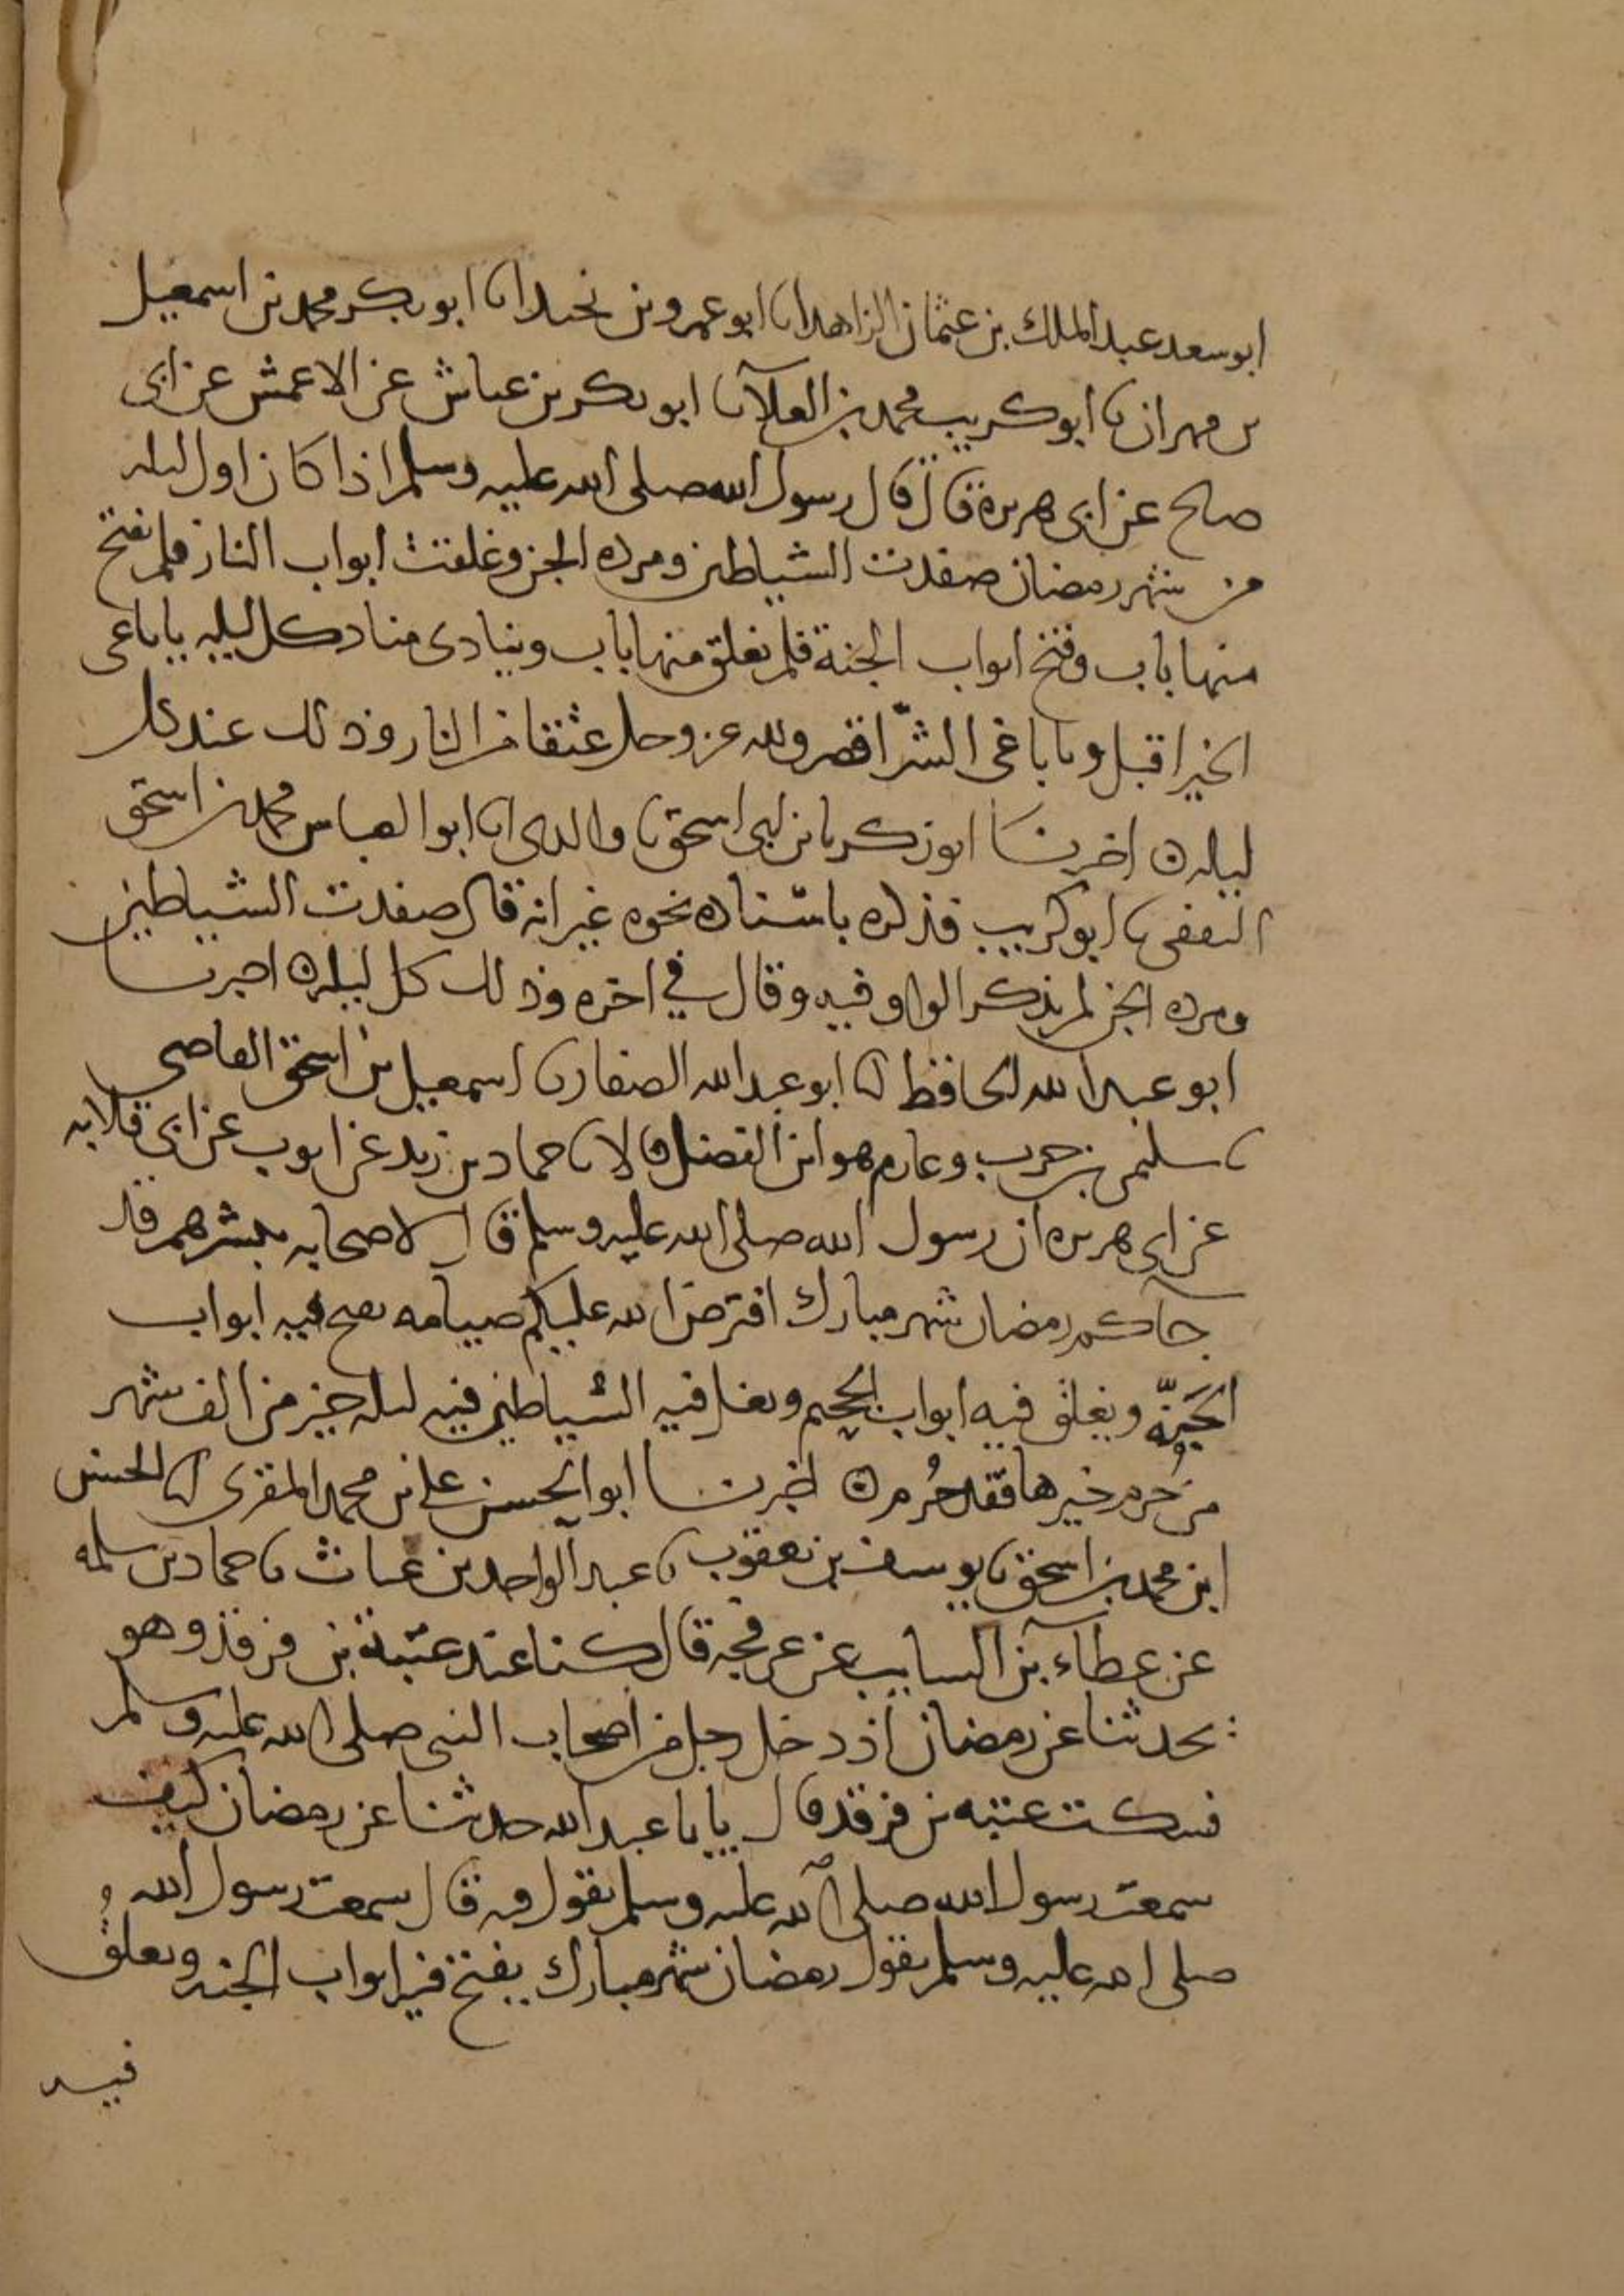 ابو سعد عبد الملك بن عثمان الزاهد انا ابو عمرو بن نجيد انا ابو بكر محمد بن اسمعيل
بن مهران نا ابو كريب محمد بن العلآ نا ابو بكر بن عياش عن الاعمش عن ابى
صالح عن ابى هريرة قال قال رسول الله صلى الله عليه وسلم اذا كان اول ليله
من شهر رمضان صفدت الشياطين ومرده الجن وغلقت ابواب النار فلم يفتح
منها باب وفتح ابواب الجنة فلم يغلق منها باب وينادى مناد كل ليله يا باغى
الخير اقبل ويا باغى الشرّ اقصر ولله عز وجل عتقا من النار وذلك عند كل
ليله ه اخبرنا ابو زكريا بن ابى اسحق نا والدى انا ابو العباس محمد بن اسحق
الثقفى نا ابو كريب فذكره باسناده نحوه غير انه قال صفدت الشياطين
ومرده الجن لم يذكر الواو فيه وقال في اخره وذلك كل ليله ه اخبرنا
ابو عبد الله الحافظ انا ابو عبد الله الصفار نا اسمعيل بن اسحق القاضى
نا سليمن بن حرب وعارم هو ابن الفضل قالا نا حماد بن زيد عن ايوب عن ابى قلابه
عن ابى هريره ان رسول الله صلى الله عليه وسلم قال لاصحابه يبشرهم قد
جآكم رمضان شهر مبارك افترض الله عليكم صيامه تفتح فيه ابواب
الجَنّة ويغلق فيه ابواب الجحيم وتغل فيه الشياطين فيه ليله خير من الف شهر
من حُرم خيرها فقد حُرم ه اخبرنا ابو الحسن على بن محمد المقرى انا الحسن
ابن محمد بن اسحق نا يوسف بن يعقوب نا عبد الواحد بن غياث نا حماد بن سلمه
عن عطاء بن السايب عن عرفجه قال كنا عند عتبة بن فرقد وهو
يحدثنا عن رمضان اذ دخل رجل من اصحاب النبى صلى الله عليه وسلم
فسكت عتبه بن فرقد قال يا با عبد الله حدثنا عن رمضان كيف
سمعت رسول الله صلى الله عليه وسلم يقول فيه قال سمعت رسول الله
صلى الله عليه وسلم يقول رمضان شهر مبارك يفتح فيه ابواب الجنه ويغلقُ
فيه